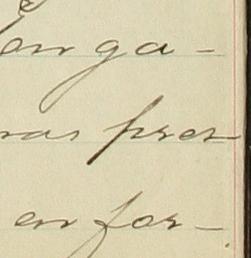 en ga-
ras pren
en for-